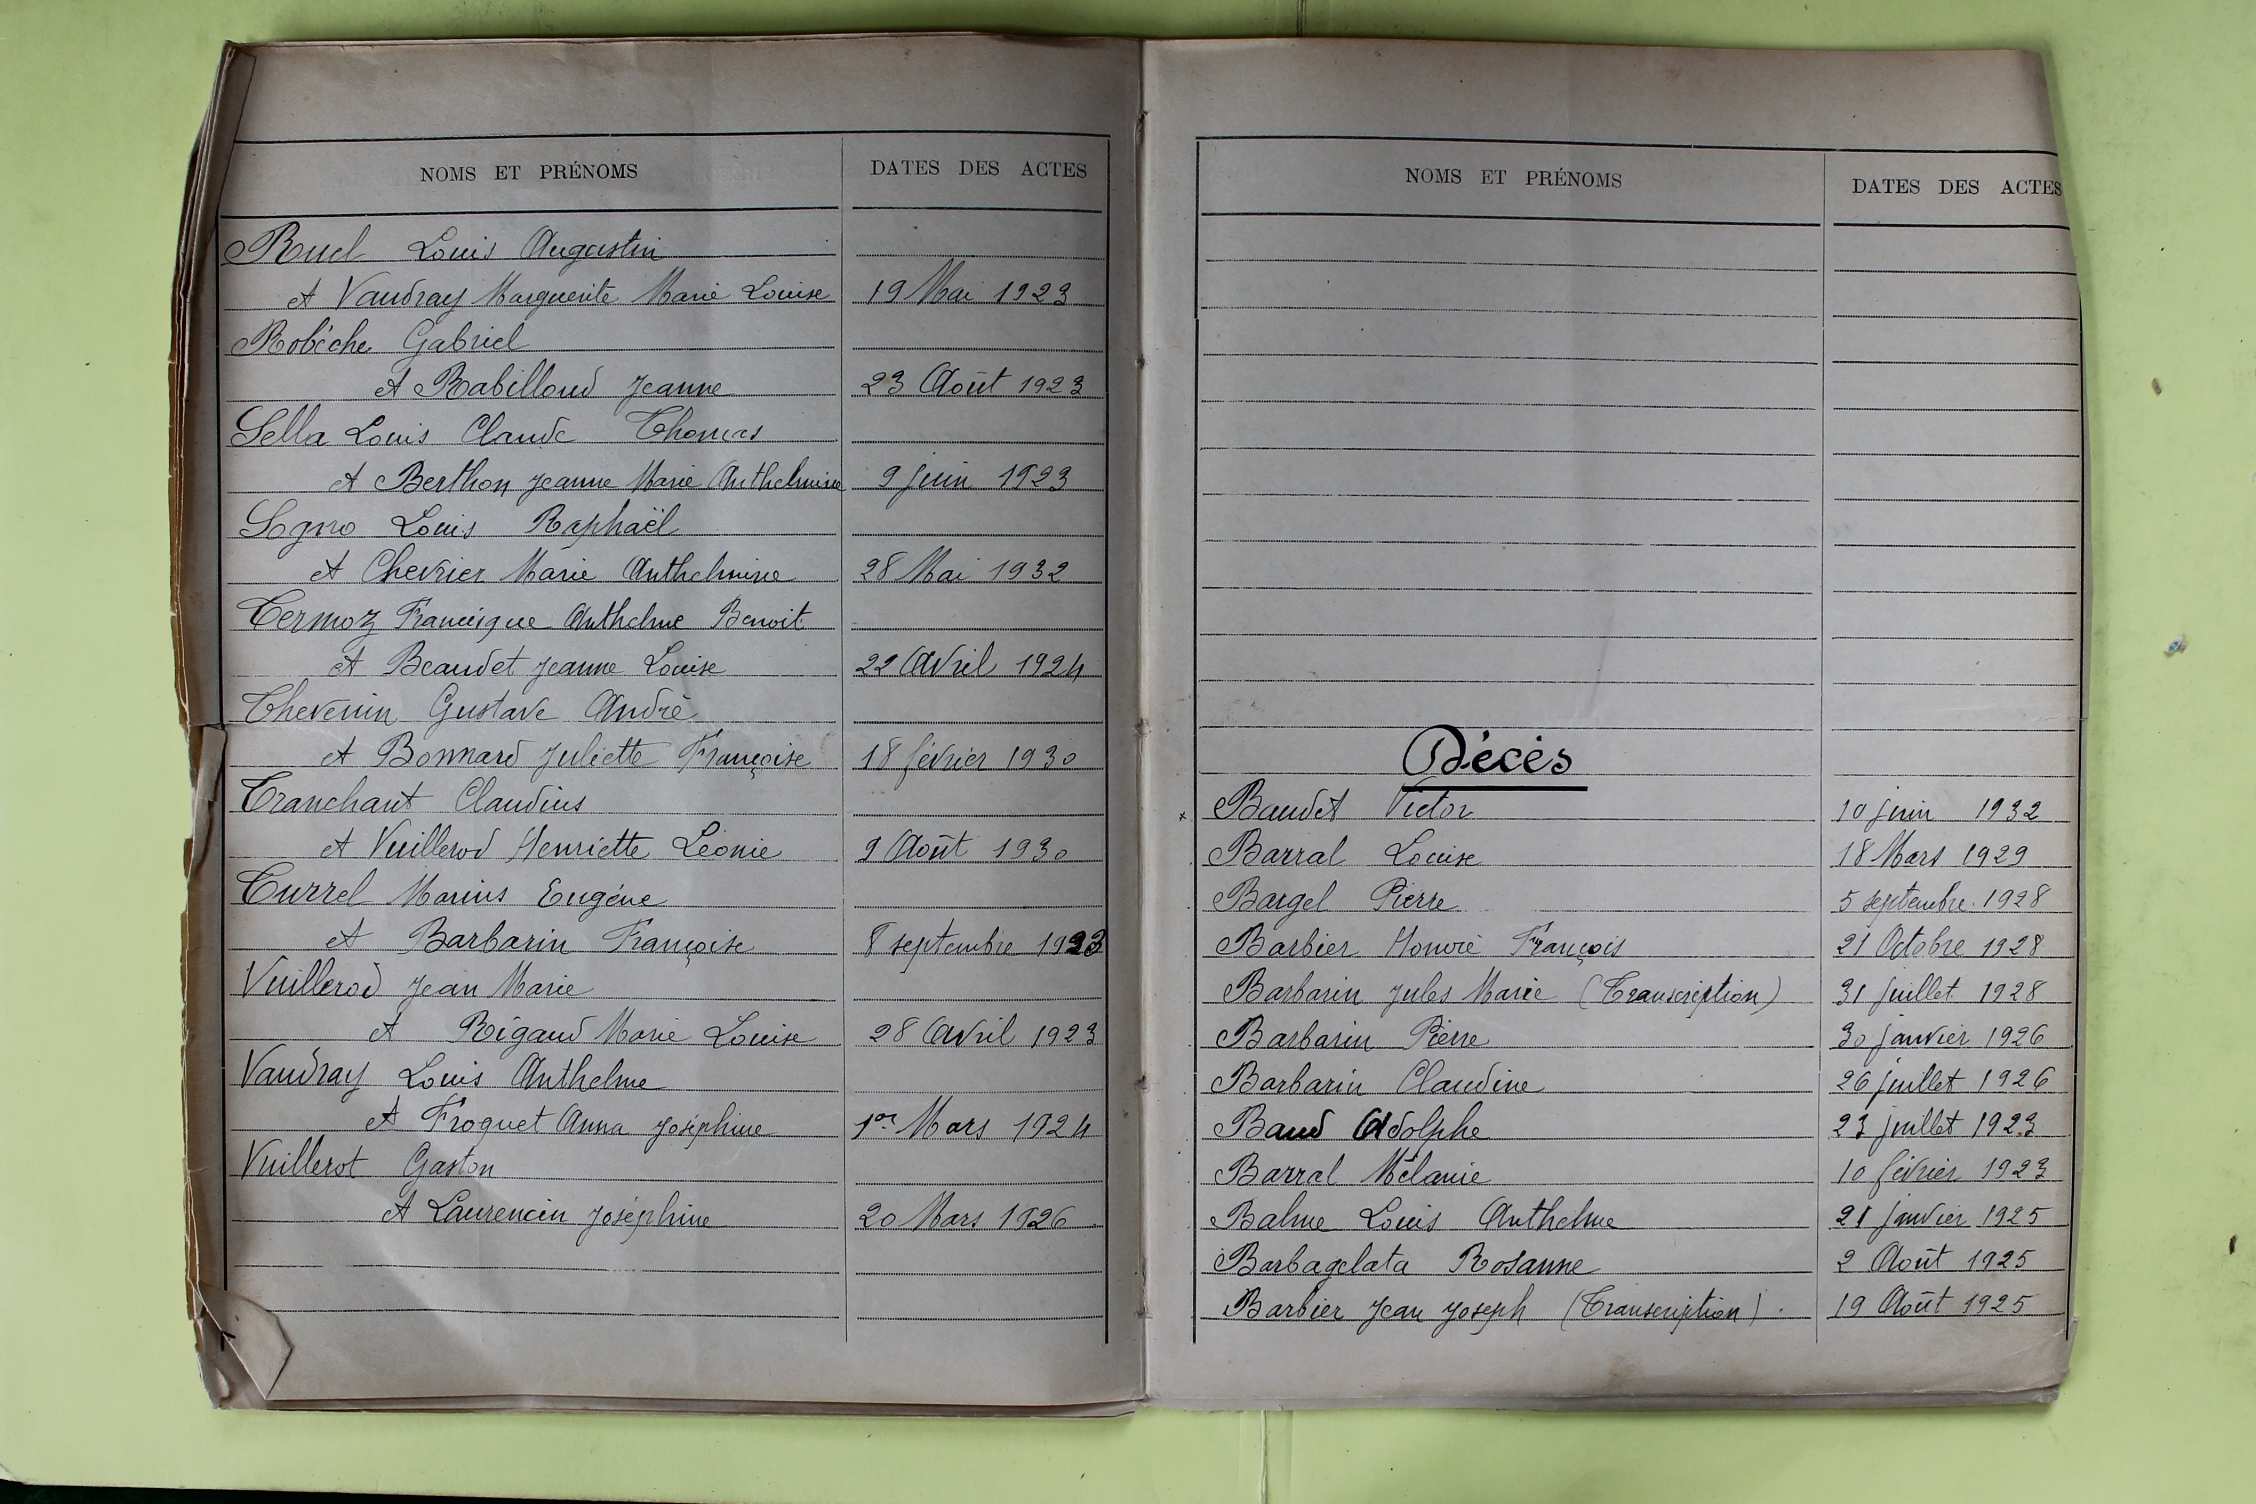 NOMS ET PRÉNOMS
DATES DES ACTES
Ruel Louis Augustin
et Vaudray Marguerite Marie Louise 19 Mai 1923
Robèche Gabriel
et Rabilloud Jeanne 23 Août 1923
Sella Louis Claude Thomas
et Berthon Jeanne Marie Anthelmine 9 juin 1923
Sogno Louis Raphaël
et Chevrier Marie Anthelmine 28 Mai 1932
Termoz Francisque Anthelme Benoit
et Beaudet Jeanne Louise 22 Avril 1924
Thevenin Gustave André
et Bonnard Juliette Françoise 18 février 1930
Tranchant Claudius
et Vuillerod Henriette Léonie 9 Août 1930
Turrel Marius Eugène
et Barbarin Françoise 8 septembre 1923
Vuillerod Jean Marie
et Rigaud Marie Louise 28 Avril 1923
Vaudray Louis Anthelme
et Froquet Anna Joséphine 1er Mars 1924
Vuillerot Gaston
et Laurencin Joséphine 20 Mars 1926
NOMS ET PRÉNOMS
DATES DES ACTES
Décès
x Baudet Victor 10 juin 1932
Barral Louise 18 Mars 1929
Bargel Pierre 5 septembre 1928
Barbier Honoré François 21 Octobre 1928
Barbarin Jules Marie (Transcription) 31 juillet 1928
Barbarin Pierre 30 janvier 1926
Barbarin Claudine 26 juillet 1926
Baud Adolphe 23 juillet 1923
Barral Mélanie 10 février 1923
Balme Louis Anthelme 21 janvier 1925
Barbagelata Rosanne 2 Août 1925
Barbier Jean Joseph (Transcription) 19 Août 1925